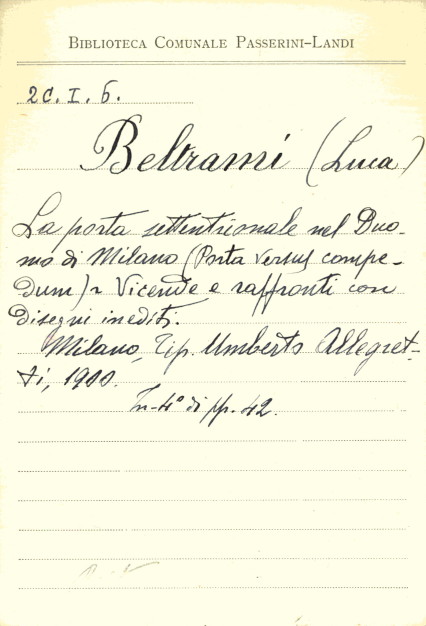 BIBLIOTECA COMUNALE PASSERINI-LANDI
2C. I. 6.
Beltrami (Luca)
La porta settentrionale nel Duo-
mo di Milano (Porta versus compe-
dum) ~ Vicende e raffronti con
disegni inediti.
Milano, Tip. Umberto Allegret-
ti, 1900.
In-4° di pp. 42.